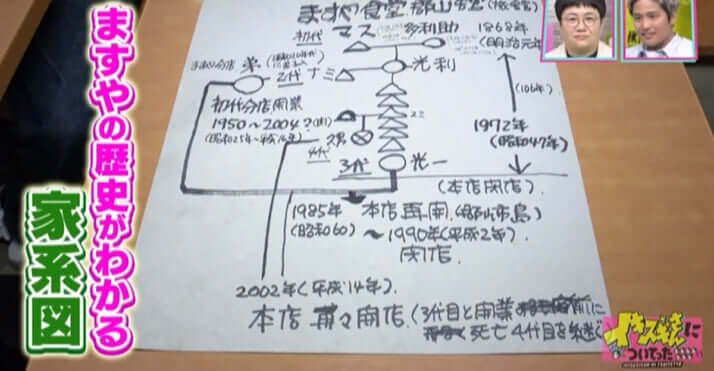 ますやの歴史がわかる
家系図
ますや食堂 郡山
初代 マス 多利助 1868年
(明治元年
2代 ナミ 光利
(106年)
初代分店開業
1950〜2004?
(昭和25年〜平成16年)
1972年
(昭和47年)
4代
3代 光一
(本店閉店).
1985年 本店再開.(郡山市島)
(昭和60) 〜1990年(平成2年).
閉店.
2002年(平成14年).
本店 再々開店.(3代目と開業
死亡 4代目を継ぐ
イキスギさんに
ついてった